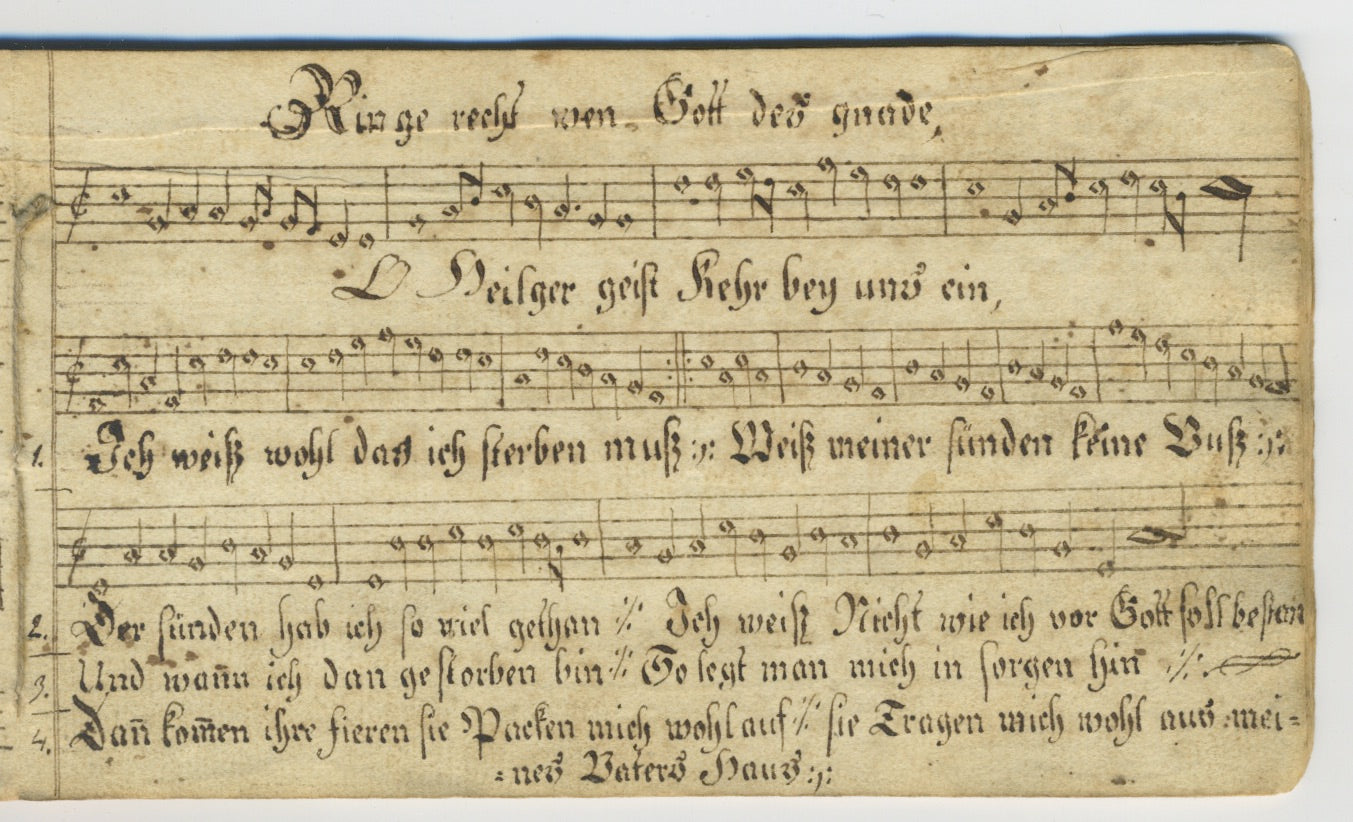 Ringe recht wen Gott des gnade,
O Heilger geist Kehr bey uns ein,
1. Ich weiß wohl das ich sterben muß :,: Weiß meiner sünden keine Buß :,:
2. Der sünden hab ich so viel gethan :/: Ich weiß Nicht wie ich vor Gott soll bestan
3. Und wan̄n ich dan gestorben bin :/: So legt man mich in sorgen hin :/:
4. Dan̄ kom̄en ihre fieren sie Packen mich wohl auf :/: sie Tragen mich wohl aus mei=
=nes Vaters Haus :,: